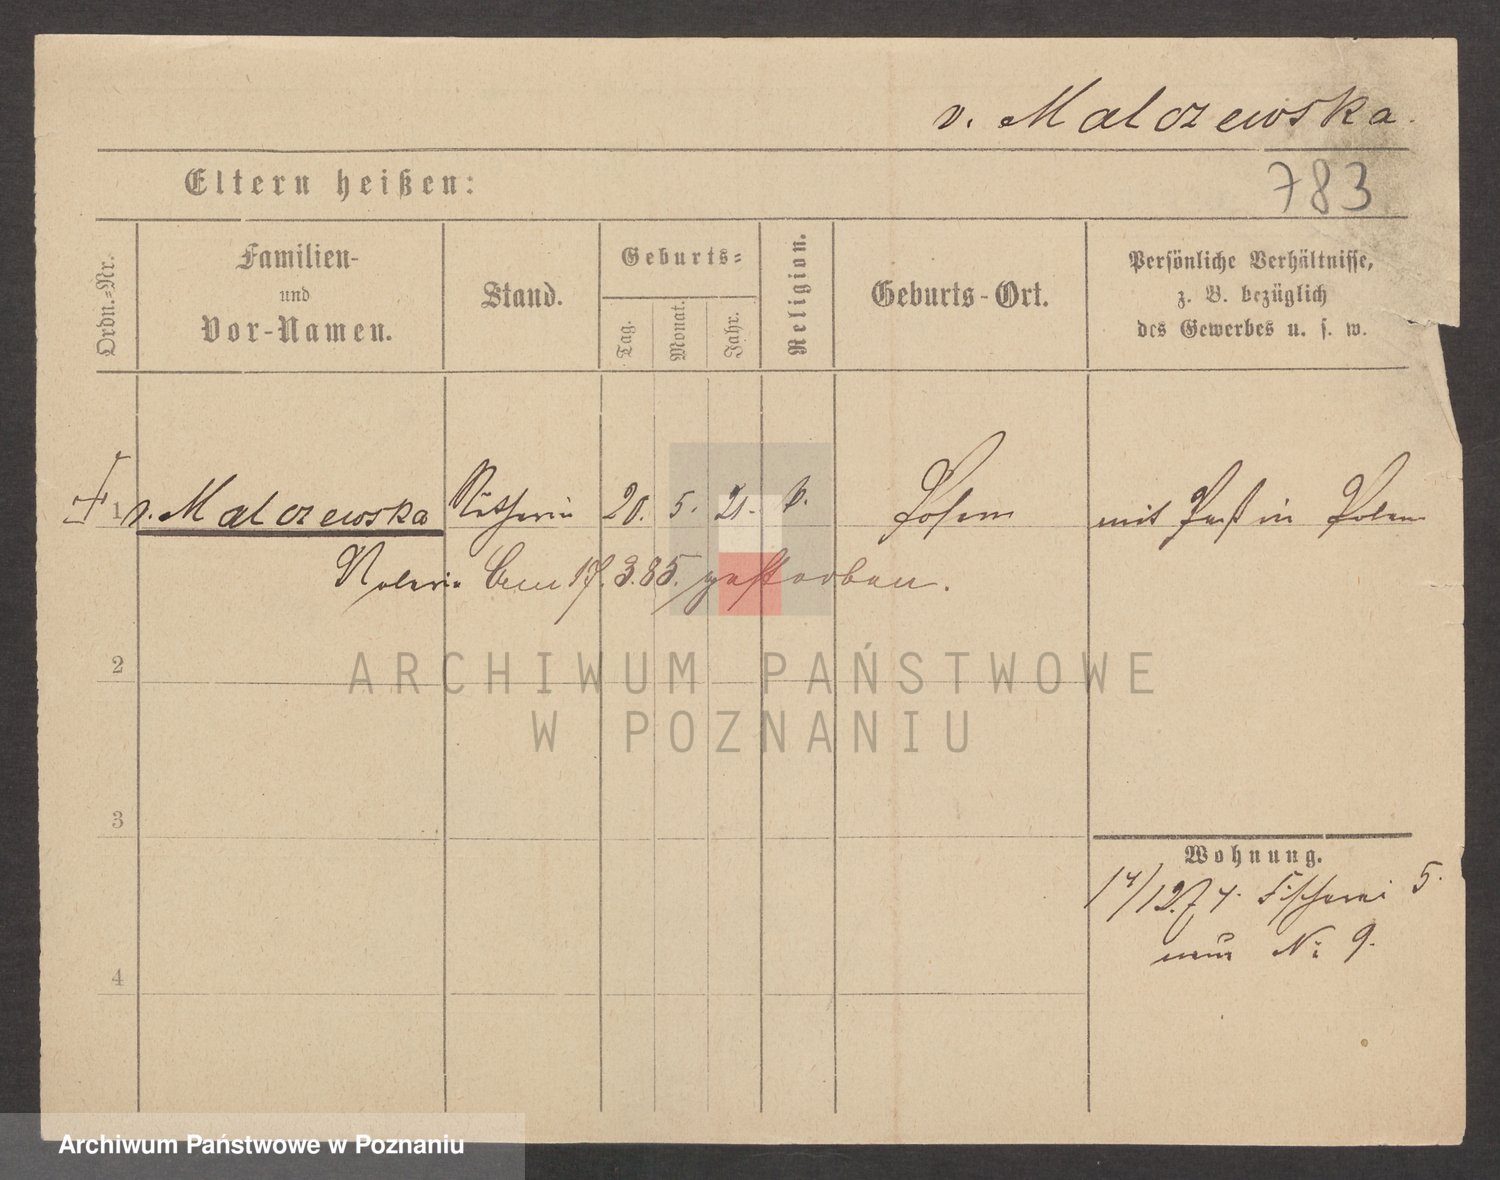 v. Malczewska.
Eltern heißen:
783
Ordn.-Nr.
Familien-
und
Vor-Namen.
Stand.
Geburts-
Tag.
Monat.
Jahr.
Religion.
Geburts-Ort.
Persönliche Verhältnisse,
z. B. bezüglich
des Gewerbes u. s. w.
1 v. Malczewska Näherin 20. 5. 21. k. Posen mit Paß in Polen
Valeria am 17.3.85. gestorben.
2
3
4
Wohnung.
14/12.74. Fischerei 5.
neue No 9.
ARCHIWUM PAŃSTWOWE
W POZNANIU
Archiwum Państwowe w Poznaniu